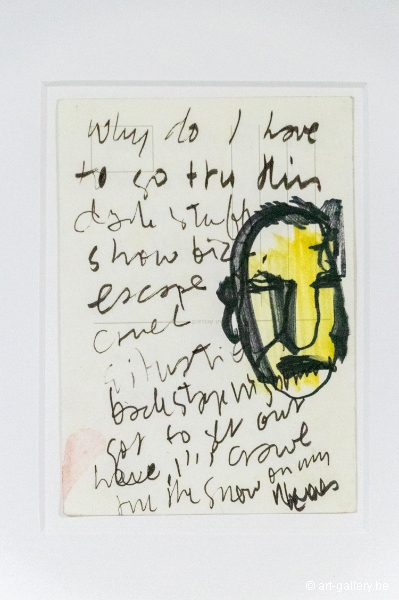 Why do I have
to go tru this
dark stuff
show biz
escape
cruel
situatio
backstage
got to get out
here!!! crawl
tru the snow on my
knees
© art-gallery.be